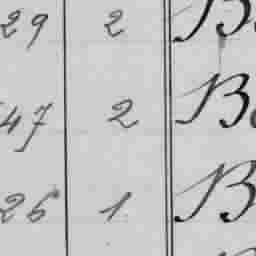 29 2 B
47 2 B
26 1 B